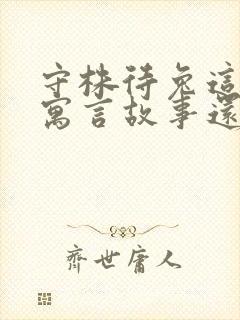 守株待兔這
寓言故事還
齊世庸人